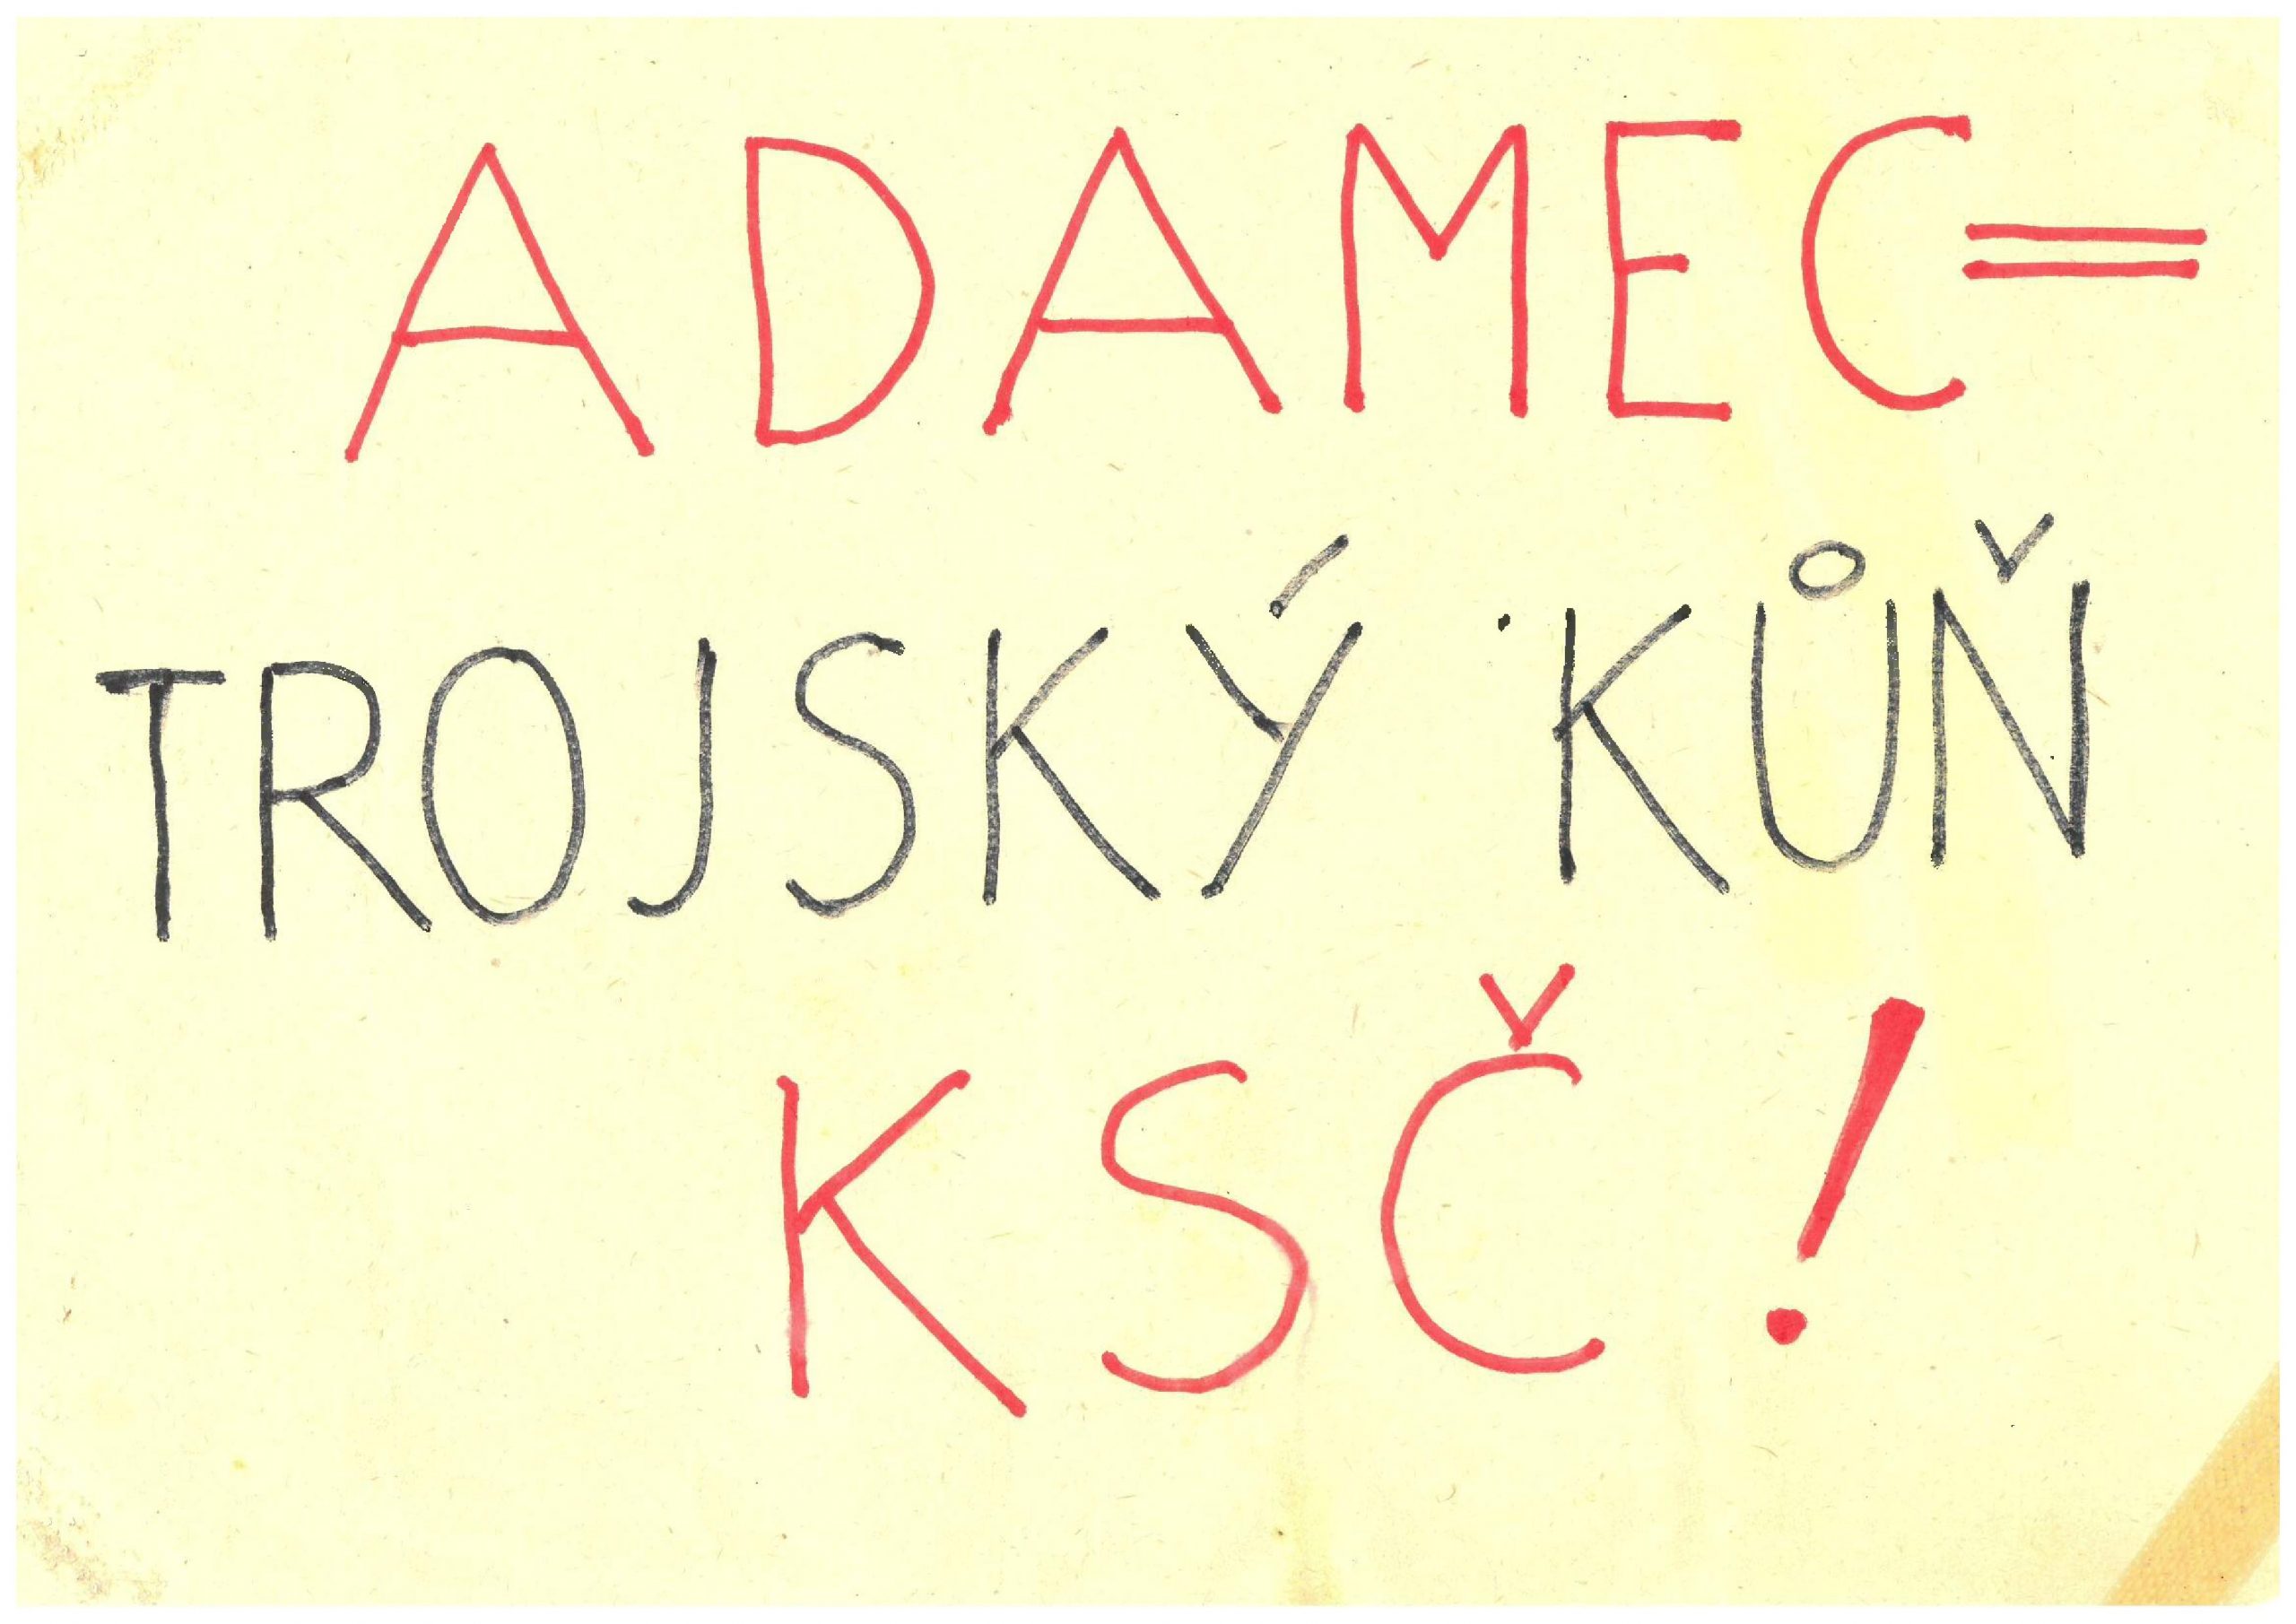 ADAMEC=
TROJSKÝ KŮŇ
KSČ!